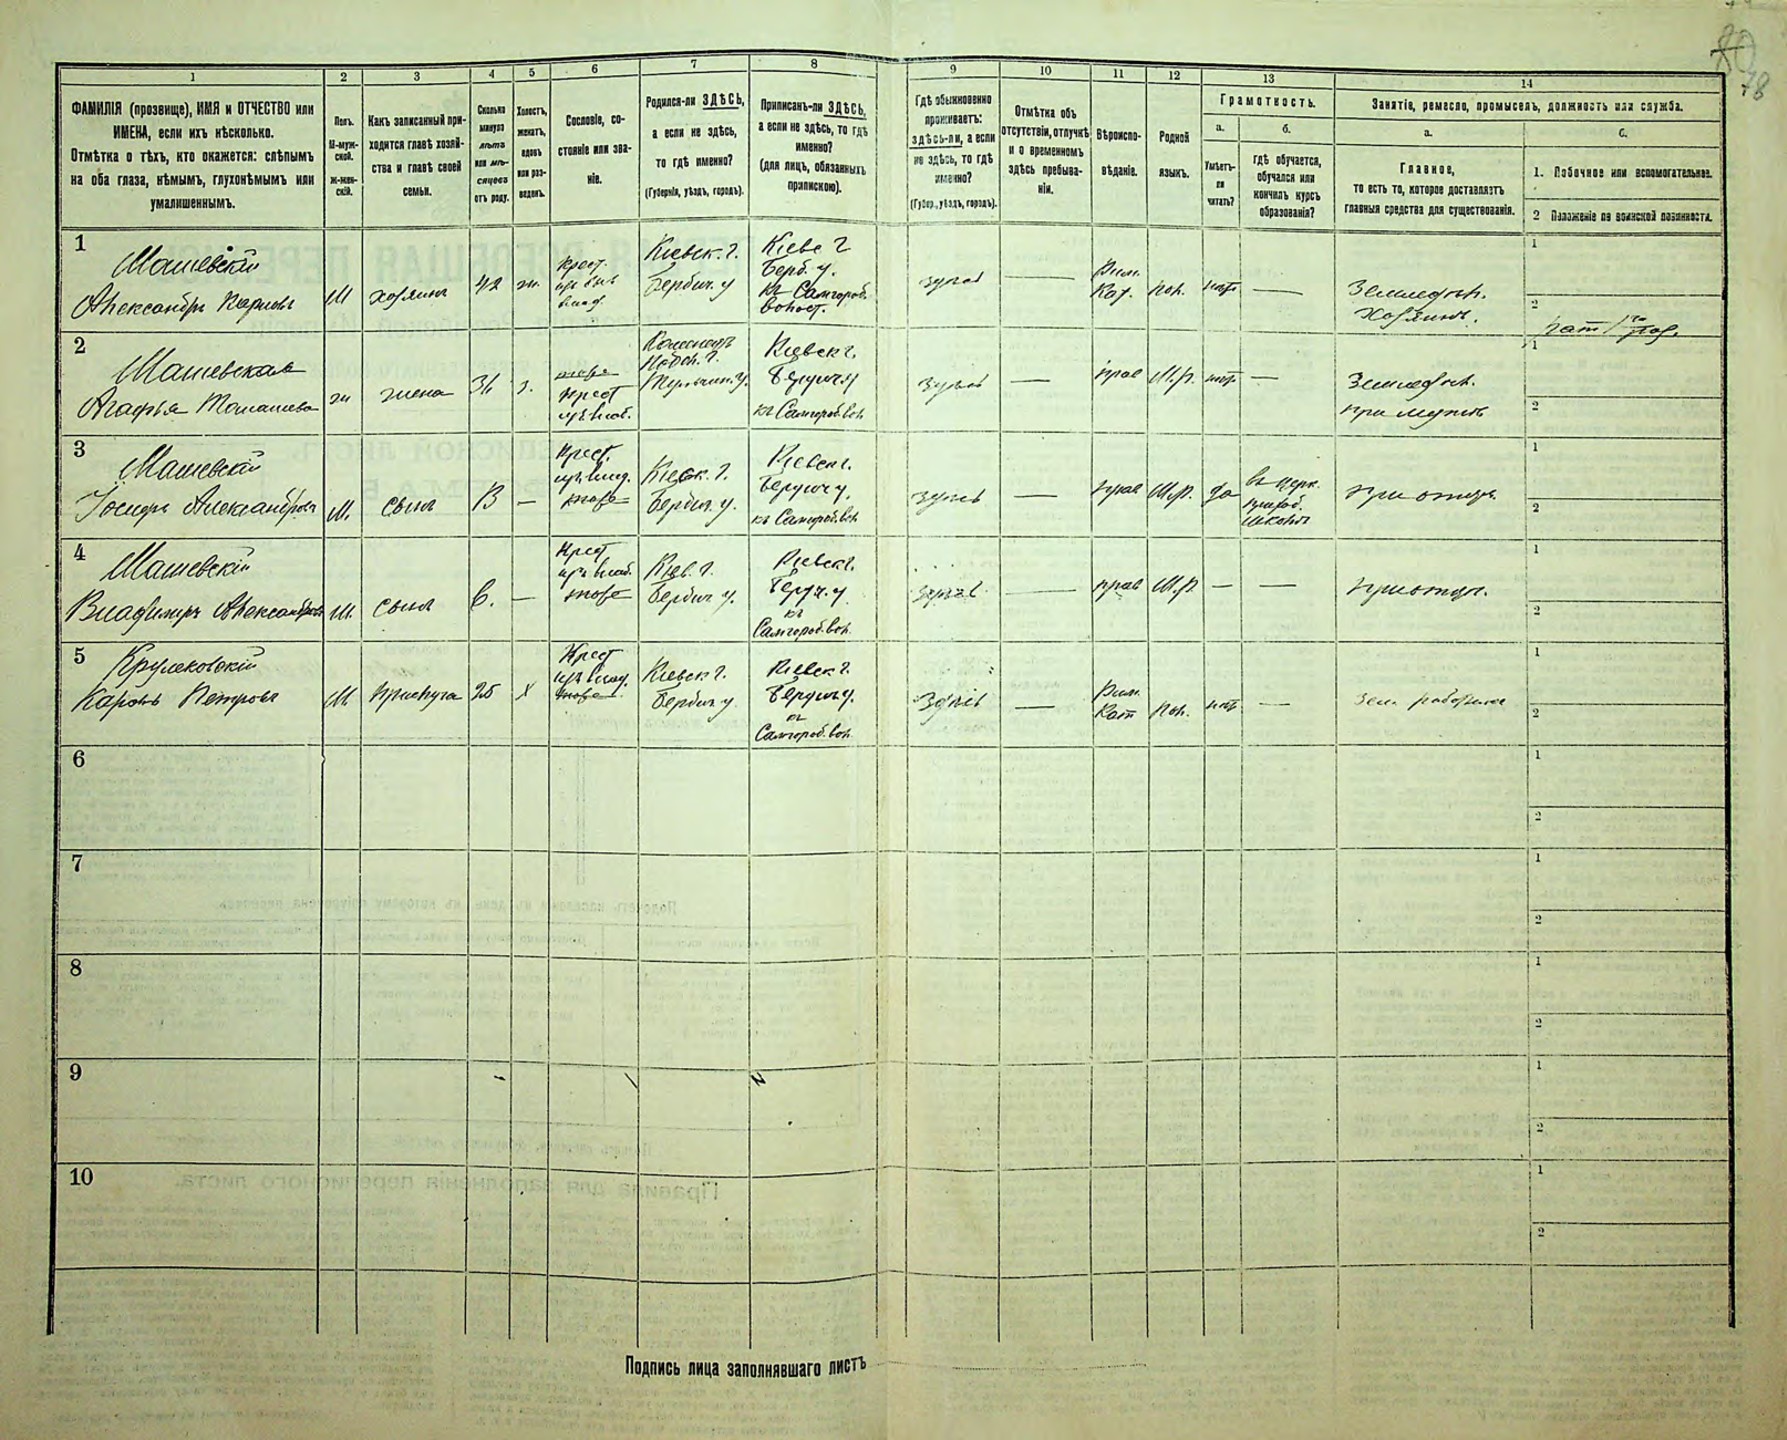 80
78
1
2
3
4
5
6
7
8
9
10
11
12
13
14
ФАМИЛІЯ (прозвище), ИМЯ и ОТЧЕСТВО или
ИМЕНА, если ихъ нѣсколько.
Отмѣтка о тѣхъ, кто окажется: слѣпымъ
на оба глаза, нѣмымъ, глухонѣмымъ или
умалишеннымъ.
Полъ.
М-муж-
ской.
ж-жен-
скій.
Какъ записанный при-
ходится главѣ хозяй-
ства и главѣ своей
семьи.
Сколько
минуло
лѣтъ
или мѣ-
сяцевъ
отъ роду.
Холостъ,
женатъ,
вдовъ
или раз-
веденъ.
Сословіе, со-
стояніе или зва-
ніе.
Родился-ли ЗДѢСЬ,
а если не здѣсь,
то гдѣ именно?
(Губернія, уѣздъ, городъ).
Приписанъ-ли ЗДѢСЬ,
а если не здѣсь, то гдѣ
именно?
(для лицъ, обязанныхъ
припискою).
Гдѣ обыкновенно
проживаетъ:
здѣсь-ли, а если
не здѣсь, то гдѣ
именно?
(Губер., уѣздъ, городъ).
Отмѣтка объ
отсутствіи, отлучкѣ
и о временномъ
здѣсь пребыва-
ніи.
Вѣроиспо-
вѣданіе.
Родной
языкъ.
Грамотность.
а.
Умѣетъ-
ли
читать?
б.
Гдѣ обучается,
обучался или
кончилъ курсъ
образованія?
Занятіе, ремесло, промыселъ, должность или служба.
а.
Главное,
то есть то, которое доставляетъ
главныя средства для существованія.
б.
1. Побочное или вспомогательное.
2 Положеніе по воинской повинности.
1
Машевскій
Александръ Карловъ
М
хозяинъ
42
ж.
Крест.
Кіевск. г.
Бердич. у
Кіевс г
Берд. у.
къ Самгород.
волост.
здѣсь
—
Рим.
Кат.
пол.
нѣт
—
Земледѣл.
Хозяинъ.
1
2
2
Машевская
Агафья Томашева
ж
жена
з.
крест
Кіевск г.
Бердич у
къ Самгород. вол.
здѣсь
—
прав
М.р.
нѣт
—
Земледѣл.
при мужѣ
1
2
3
Машевскій
Іосифъ Александровъ
М.
сынъ
—
Крест.
Кіевск. г.
Бердич. у.
Кіевск г.
Бердич у.
къ Самгород. вол.
здѣсь
—
прав
М.р.
да
въ церк.
приход.
школѣ
при отцѣ.
1
2
4
Машевскій
Владимиръ Александровъ
М.
сынъ
6.
—
Крест
Кіев. г.
Бердич у.
Кіевск г.
Бердич. у
къ
Самгород. вол.
здѣсь
—
прав
М.р.
—
—
при отцѣ.
1
2
5
Крулековскій
Карлъ Петровъ
М.
Прислуга
25
х
Крест
Кіевск г.
Бердич у.
Кіевск г.
Бердич у.
къ
Самгород. вол.
здѣсь
—
Рим.
Кат
пол.
нѣт
—
Зем. работникъ
1
2
6
1
2
7
1
2
8
1
2
9
1
2
10
1
2
Подпись лица заполнявшаго листъ